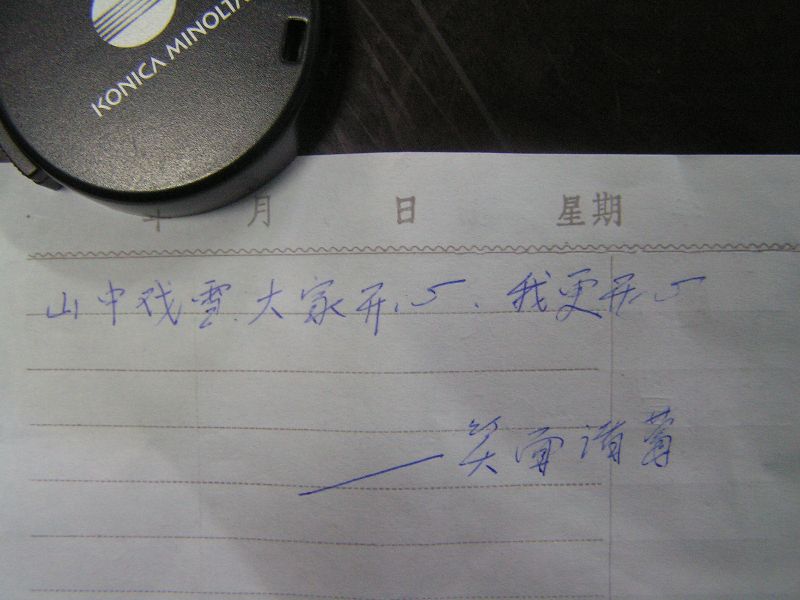 KONICA MINOLTA
年 月 日 星期
山中戏雪.大家开心、我更开心
——笑面诸葛